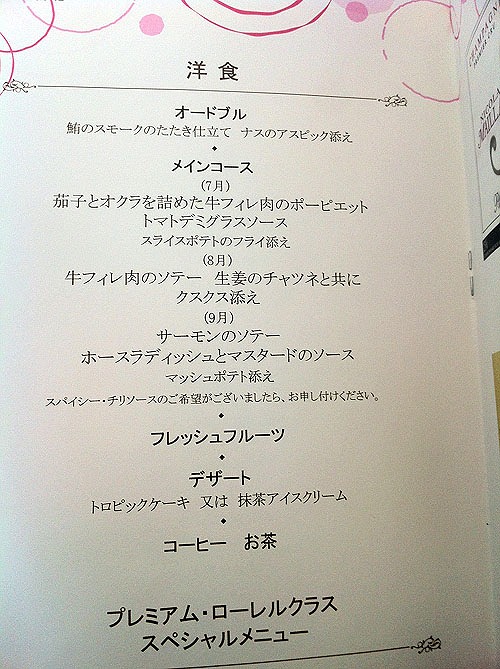 洋食
オードブル
鮪のスモークのたたき仕立て　ナスのアスピック添え
メインコース
(7月)
茄子とオクラを詰めた牛フィレ肉のポーピエット
トマトデミグラスソース
スライスポテトのフライ添え
(8月)
牛フィレ肉のソテー　生姜のチャツネと共に
クスクス添え
(9月)
サーモンのソテー
ホースラディッシュとマスタードのソース
マッシュポテト添え
スパイシー・チリソースのご希望がございましたら、お申し付けください。
フレッシュフルーツ
デザート
トロピックケーキ　又は　抹茶アイスクリーム
コーヒー　お茶
プレミアム・ローレルクラス
スペシャルメニュー